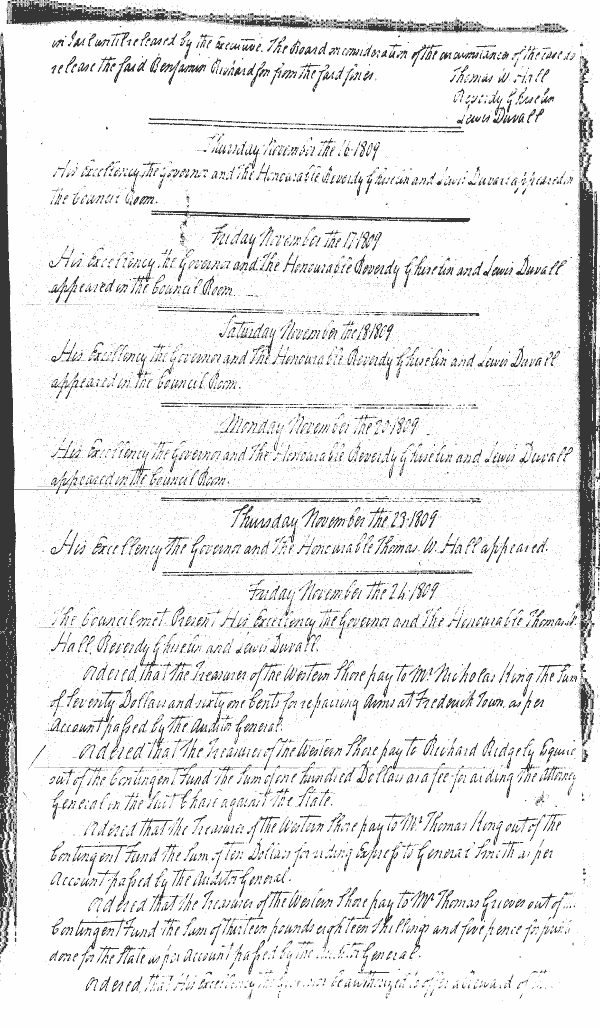 in Jail until released by the Executive. The Board on consideration of the circumstances of the case do
release the said Benjamin Richardson from the said fines.
Thomas W. Hall
Reverdy Ghiselin
Lewis Duvall
Thursday November the 16. 1809
His Excellency the Governor and The Honourable Reverdy Ghiselin and Lewis Duvall appeared in
the Council Room.
Friday November the 17. 1809
His Excellency the Governor and The Honourable Reverdy Ghiselin and Lewis Duvall
appeared in the Council Room.
Saturday November the 18. 1809
His Excellency the Governor and The Honourable Reverdy Ghiselin and Lewis Duvall
appeared in the Council Room.
Monday November the 20. 1809
His Excellency the Governor and The Honourable Reverdy Ghiselin and Lewis Duvall
appeared in the Council Room.
Thursday November the 23. 1809
His Excellency the Governor and The Honourable Thomas. W. Hall appeared.
Friday November the 24. 1809
The Council met. Present His Excellency the Governor and The Honourable Thomas W
Hall, Reverdy Ghiselin and Lewis Duvall.
Ordered, that the Treasurer of the Western Shore pay to Mr. Nicholas Hong the Sum
of Seventy Dollars and sixty one Cents for repairing Arms at Frederick Town, as per
Account passed by the Auditor General.
Ordered that the Treasurer of the Western Shore pay to Richard Ridgely Esquire
out of the Contingent Fund the Sum of one hundred Dollars as a fee for aiding the Attorney
General in the Suit Chase against the State.
Ordered that the Treasurer of the Western Shore pay to Mr. Thomas Hong out of the
Contingent Fund the Sum of ten Dollars for riding Express to General Smith as per
Account passed by the Auditor General.
Ordered that the Treasurer of the Western Shore pay to Mr. Thomas Grieves out of
Contingent Fund the Sum of thirteen pounds eighteen Shillings and five pence for
done for the State as per Account passed by the Auditor General.
Ordered, that His Excellency the Governor be authorized to offer a Reward of